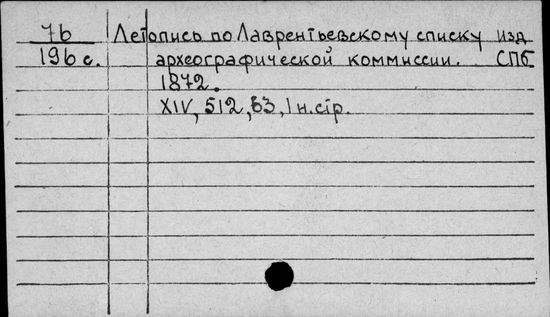 7b Летопись по Лаврентьевскому списку изд
196 с. археографической коммиссии. СПб
1872.
XIV, 512, 63, 1 н. стр.